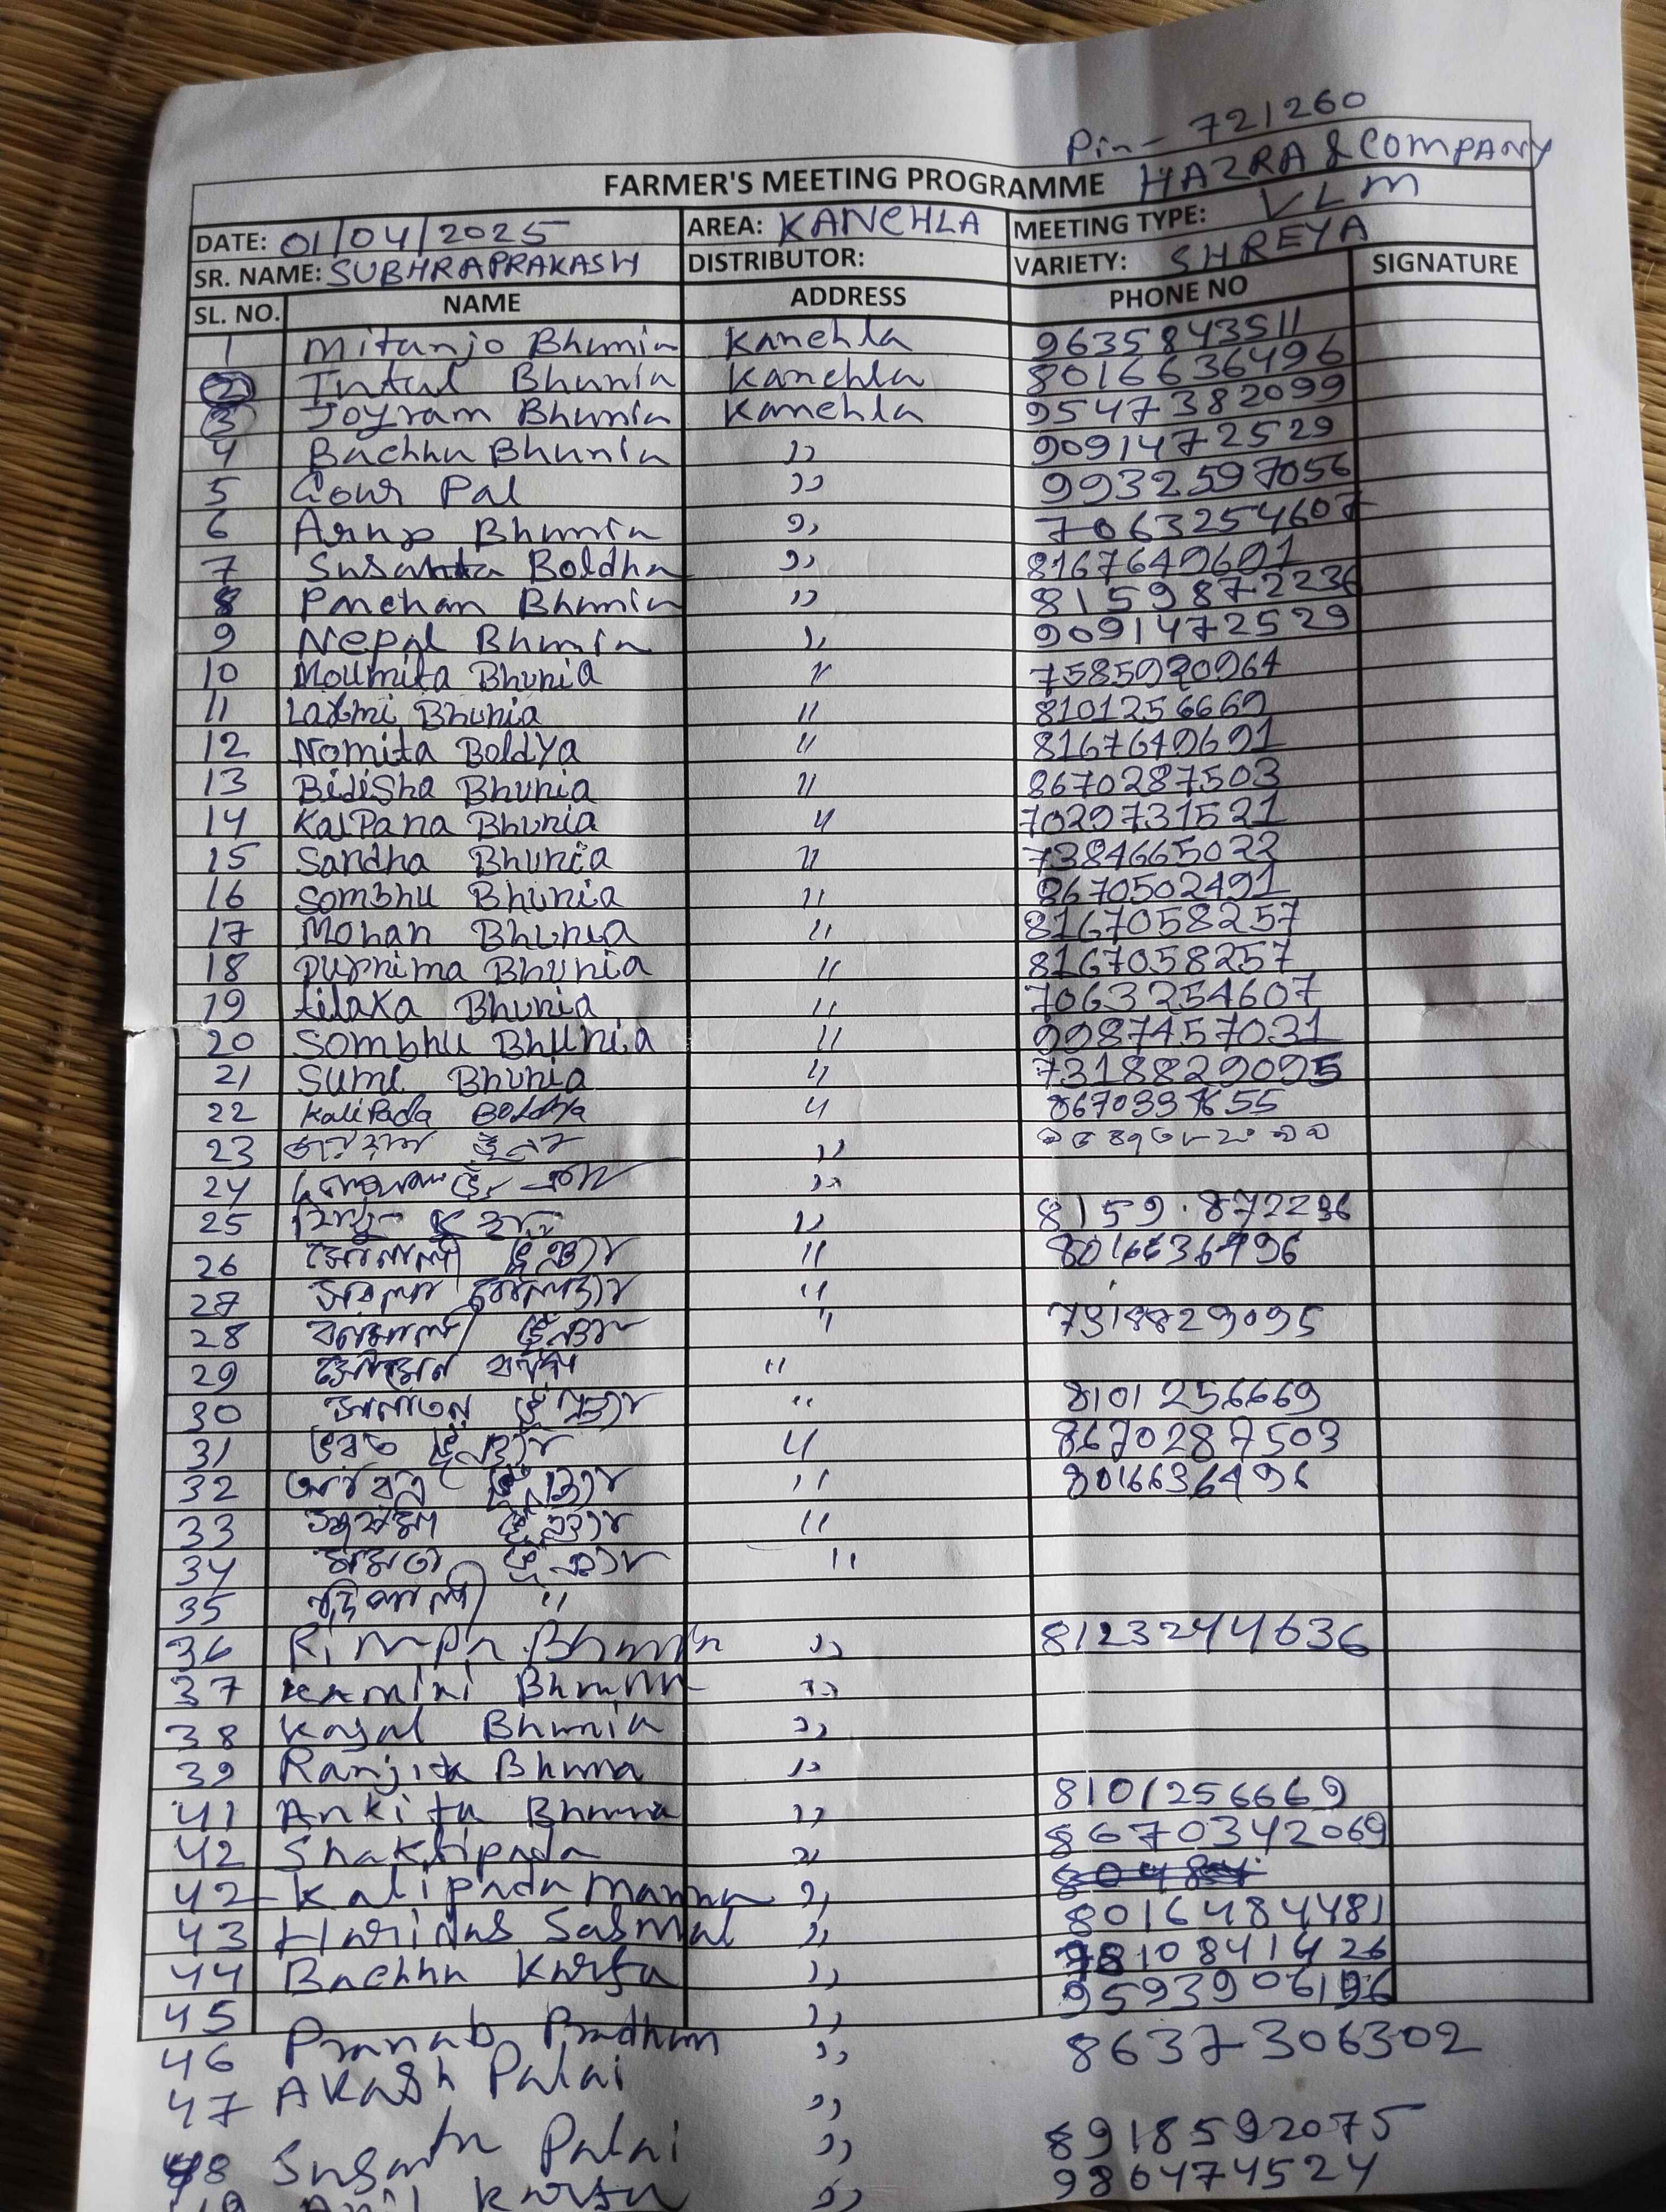 Pin- 721260
FARMER'S MEETING PROGRAMME HAZRA & COMPANY
DATE: 01/04/2025 AREA: KANCHLA MEETING TYPE: VLM
SR. NAME: SUBHRAPRAKASH DISTRIBUTOR: VARIETY: SHREYA
SL. NO. NAME ADDRESS PHONE NO SIGNATURE
1 Mitanjo Bhunia Kanchla 9635843511
2 Bhunia Kanchla 8016636496
3 Joyram Bhunia Kanchla 9547382099
4 Bachhu Bhunia ,, 9091472529
5 Gour Pal ,, 9932597056
6 Arup Bhunia ,, 7063254607
7 Susanta Boldha ,, 8167649691
8 Panchan Bhunia ,, 8159872236
9 Nepal Bhunia ,, 9091472529
10 Moumita Bhunia " 7585920964
11 Laxmi Bhunia " 8101256669
12 Nomita Boldya " 8167649691
13 Bidisha Bhunia " 8670287503
14 Kalpana Bhunia " 7029731521
15 Sandha Bhunia " 7384665022
16 Sombhu Bhunia " 8670502491
17 Mohan Bhunia " 8167058257
18 Purnima Bhunia " 8167058257
19 tilaka Bhunia " 7063254607
20 Sombhu Bhunia " 9987457031
21 Sume Bhunia " 7318829095
22 Kalipada Boldya "
23 ,,
24 ,,
25 ,, 8159.872236
26 সোনালী ভূঞ্যা " 8016636496
27 সরলা "
28 বনমালী ভূঞ্যা " 7318829095
29 সৌমেন "
30 সনাতন ভূঞ্যা " 8101256669
31 ভরত ভূঞ্যা " 8670287503
32 ভূঞ্যা " 8016636496
33 ভূঞ্যা "
34 মমতা ভূঞ্যা "
35 "
36 Rimpa Bhunia ,, 8123244636
37 Kamini Bhunia ,,
38 Kajal Bhunia ,,
39 Ranjit Bhunia ,,
41 Ankita Bhunia ,, 8101256669
42 Shaktipada ,, 8670342069
42 Kalipada Manna ,,
43 Haridas Sasmal ,, 8016484481
44 Bachhu Karfa ,,
45 ,,
46 Pranab Pradhan ,, 8637306302
47 Akash Palai ,,
48 Susanta Palai ,, 8918592075
Karfa ,, 9864744524